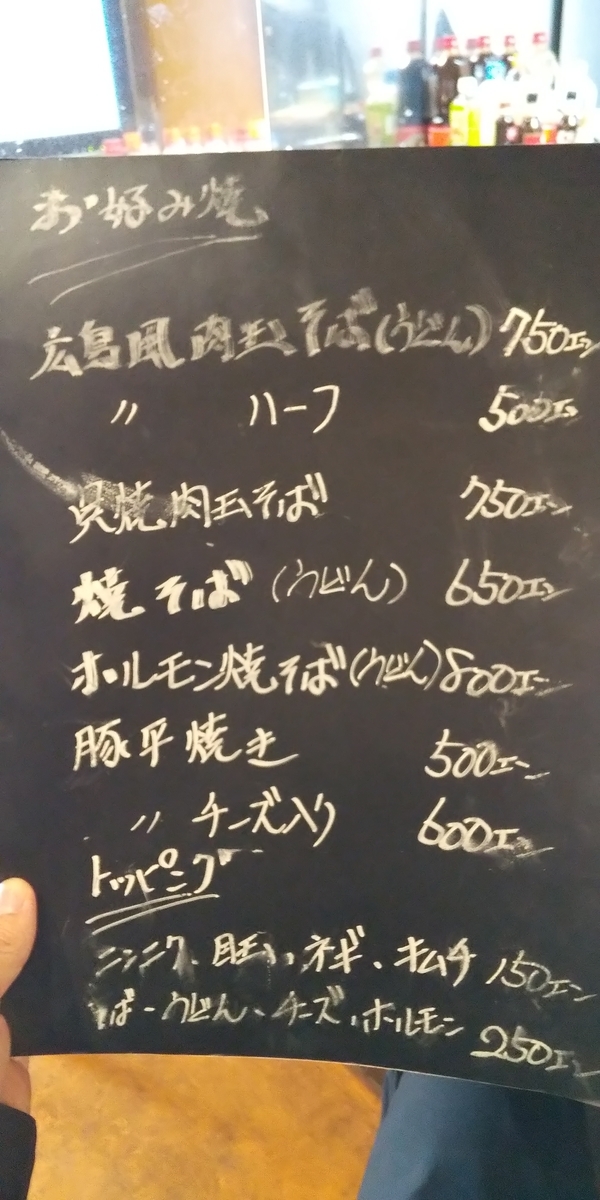 お好み焼
広島風肉玉そば(うどん) 750エン
〃 ハーフ 500エン
呉焼肉玉そば 750エン
焼そば(うどん) 650エン
ホルモン焼そば(うどん) 800エン
豚平焼き 500エン
〃 チーズ入り 600エン
トッピング
ニンニク、目玉、ネギ、キムチ 150エン
そば・うどん、チーズ、ホルモン 250エン